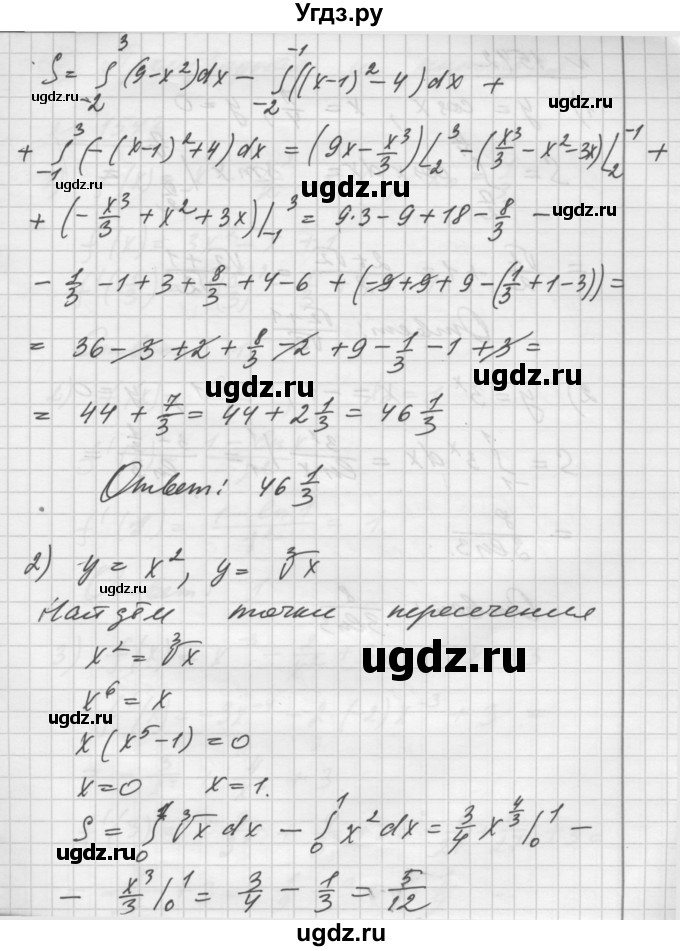 Угдз.ру
S = ∫₋₂³ (9-x²)dx - ∫₋₂⁻¹ ((x-1)² - 4)dx +
ugdz.ru
ugdz.ru
+ ∫₋₁³ (-(x-1)² + 4)dx = (9x - x³/3)|₋₂³ - (x³/3 - x² - 3x)|₋₂⁻¹ +
ugdz.ru
ugdz.ru
+ (-x³/3 + x² + 3x)|₋₁³ = 9·3 - 9 + 18 - 8/3 -
ugdz.ru
- 1/3 - 1 + 3 + 8/3 + 4 - 6 + (-9 + 9 + 9 - (1/3 + 1 - 3)) =
= 36 - 3 + 2 + 8/3 - 2 + 9 - 1/3 - 1 + 3 =
ugdz.ru
ugdz.ru
= 44 + 7/3 = 44 + 2 1/3 = 46 1/3
ugdz.ru
Ответ: 46 1/3
2) y = x², y = ∛x
ugdz.ru
Найдём точки пересечения
x² = ∛x
ugdz.ru
x⁶ = x
ugdz.ru
x(x⁵ - 1) = 0
x = 0 x = 1.
S = ∫₀¹ ∛x dx - ∫₀¹ x² dx = 3/4 x^(4/3)|₀¹ -
ugdz.ru
ugdz.ru
- x³/3|₀¹ = 3/4 - 1/3 = 5/12
ugdz.ru